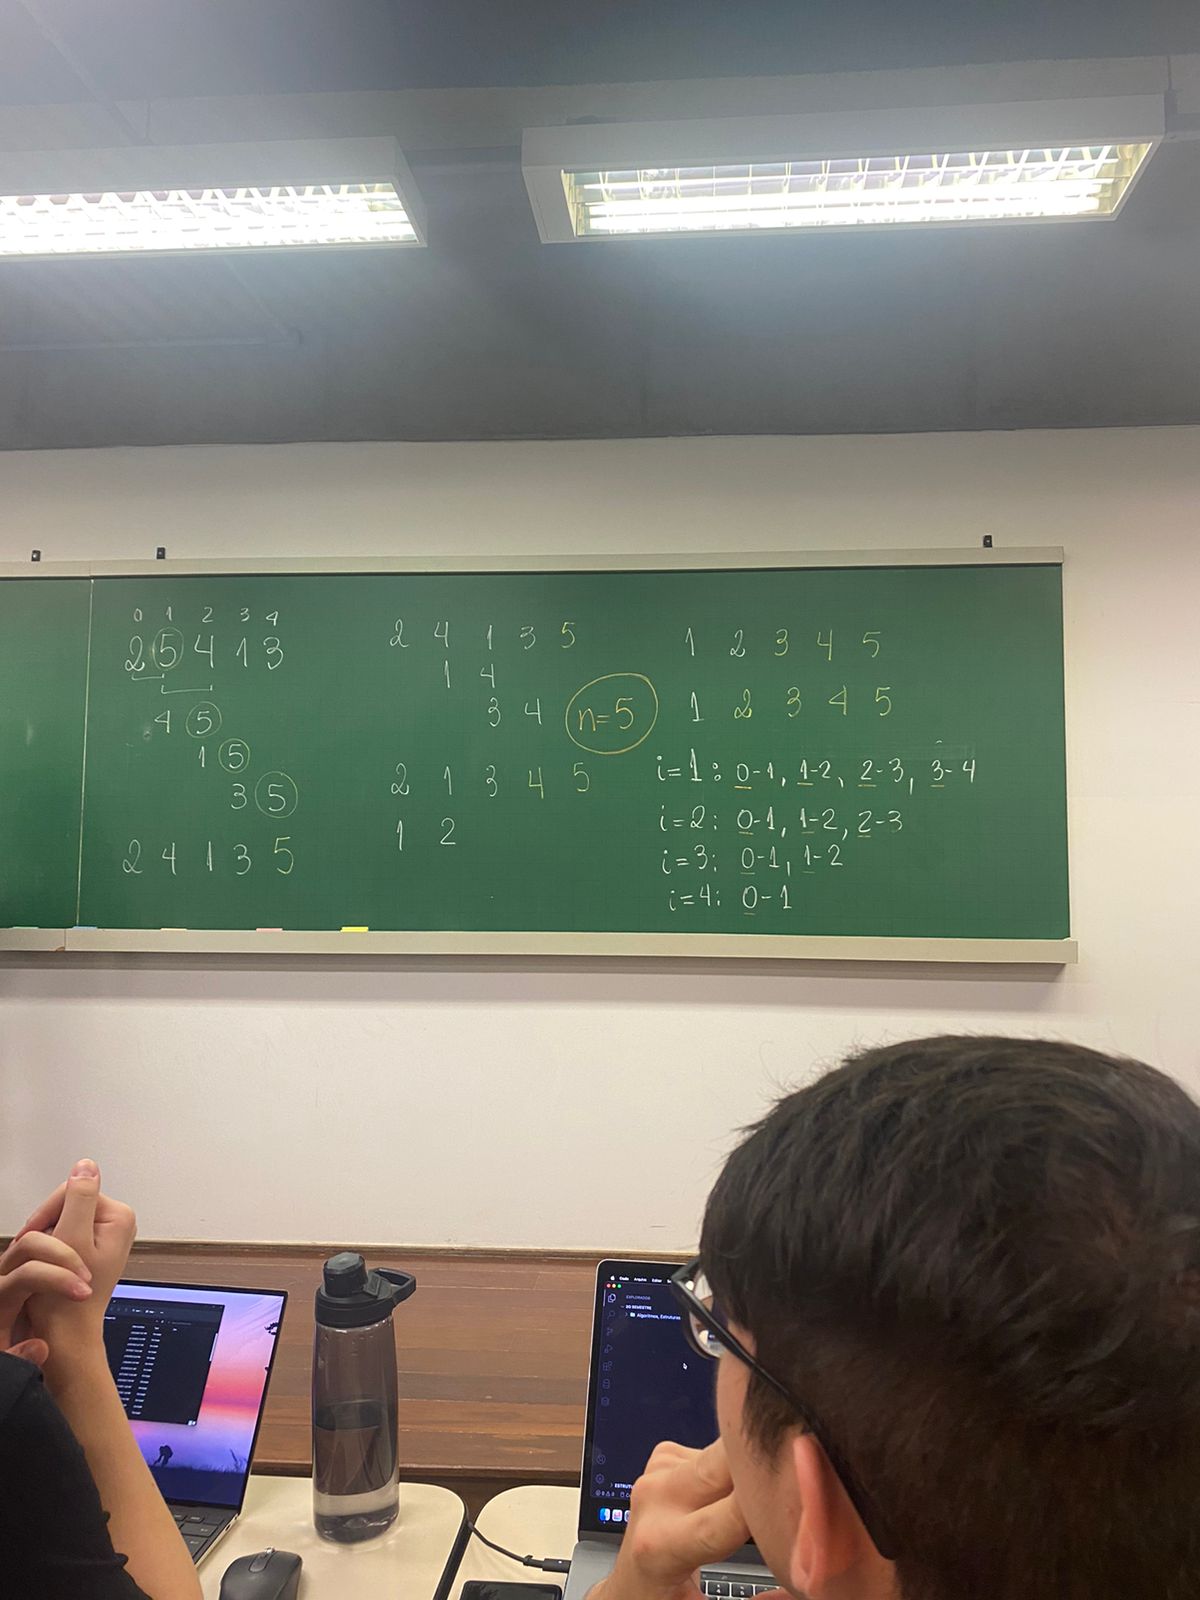 0 1 2 3 4
2 5 4 1 3
4 5
1 5
3 5
2 4 1 3 5
2 4 1 3 5
1 4
3 4
n=5
2 1 3 4 5
1 2
1 2 3 4 5
1 2 3 4 5
i=1: 0-1, 1-2, 2-3, 3-4
i=2: 0-1, 1-2, 2-3
i=3: 0-1, 1-2
i=4: 0-1
Code Arquivo Editar
EXPLORADOR
2O SEMESTRE
Algoritmos, Estruturas